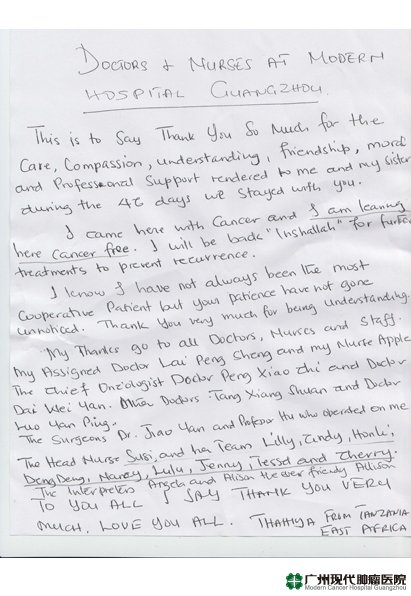 DOCTORS & NURSES AT MODERN
HOSPITAL GUANGZHOU.
This is to Say Thank You So Much for the
Care, Compassion, understanding, friendship, moral
and Professional Support rendered to me and my sister
during the 46 days we stayed with you.
I came here with Cancer and I am leaving
here Cancer free. I will be back "Inshallah" for further
treatments to prevent recurrence.
I know I have not always been the most
Cooperative Patient but your patience have not gone
unnoticed. Thank You very much for being understanding.
My Thanks go to all Doctors, Nurses and Staff.
My Assigned Doctor Lai Peng Sheng and my Nurse Apple
The Chief Oncologist Doctor Peng Xiao Chi and Doctor
Dai Wei Yan. Doctors: Tang Xiang Shuan and Doctor
Luo Yan Ping.
The Surgeons Dr. Jiao Yan and Professor Hu who operated on me
The Head Nurse Susi, and her Team Lilly, Cindy, Honki,
DengDeng, Nancy, Lulu, Jenny, Tessel and Cherry.
The Interpreters Angela and Alison the ever friendly Allison
TO YOU ALL I SAY THANK YOU VERY
MUCH, LOVE YOU ALL. THAHIYA FROM TANZANIA
EAST AFRICA
广州现代肿瘤医院
Modern Cancer Hospital Guangzhou